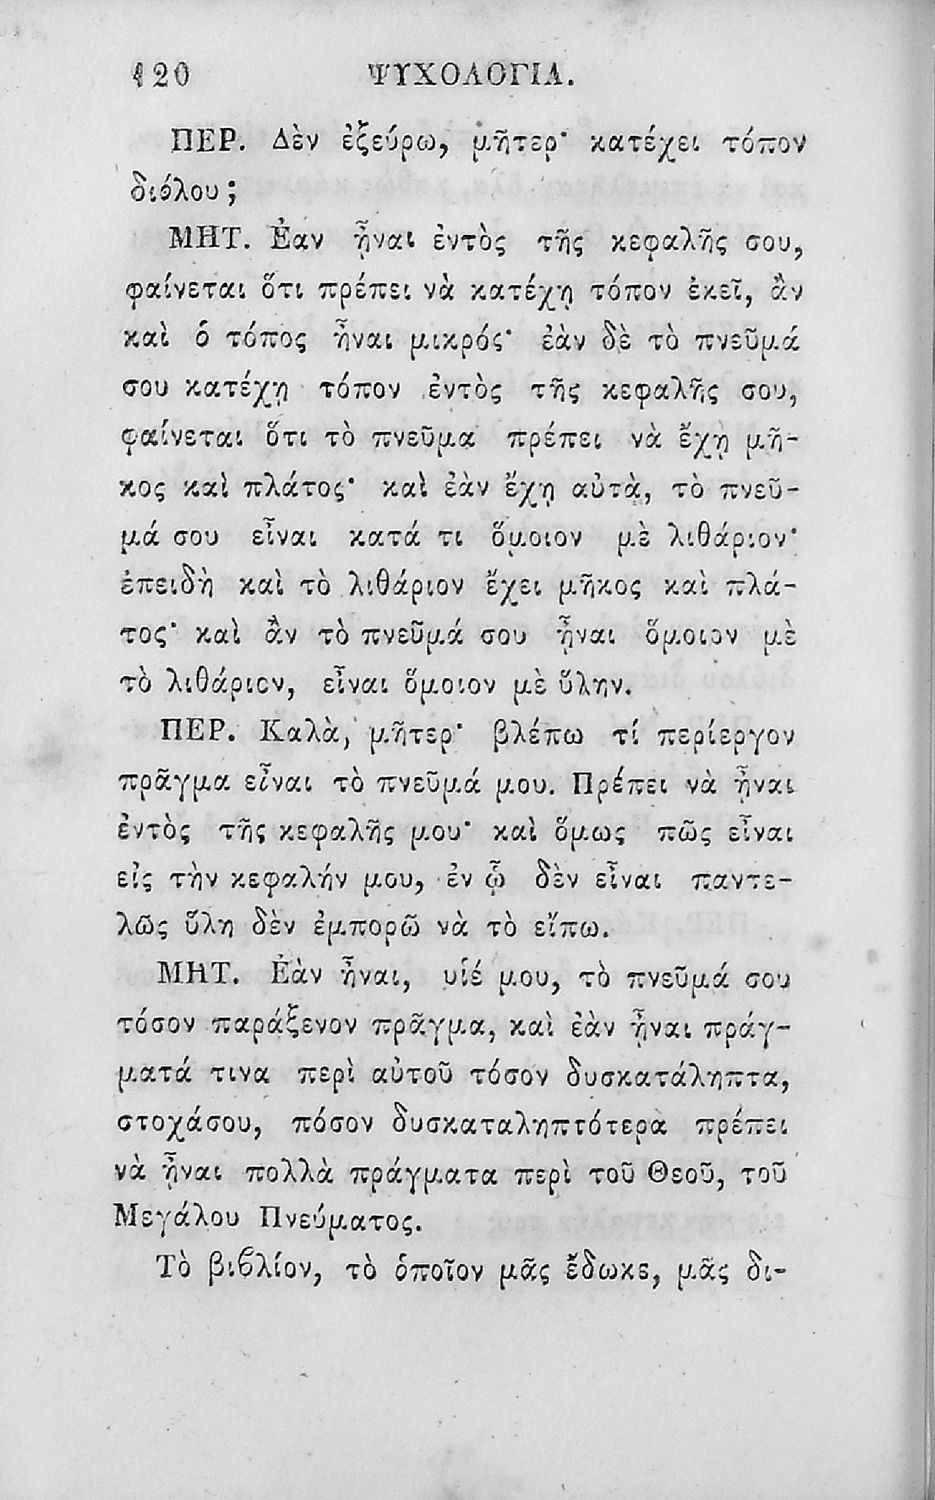 120 ΨΥΧΟΛΟΓΙΑ.
ΠΕΡ. Δὲν ἐξεύρω, μῆτερ· κατέχει τόπον
διόλου;
ΜΗΤ. Ἐαν ἦναι ἐντὸς τῆς κεφαλῆς σου,
φαίνεται ὅτι πρέπει νὰ κατέχῃ τόπον ἐκεῖ, ἂν
καὶ ὁ τόπος ἦναι μικρός· ἐὰν δὲ τὸ πνεῦμά
σου κατέχῃ τόπον ἐντὸς τῆς κεφαλῆς σου,
φαίνεται ὅτι τὸ πνεῦμα πρέπει νὰ ἔχῃ μῆ-
κος καὶ πλάτος· καὶ ἐὰν ἔχῃ αὐτὰ, τὸ πνεῦ-
μά σου εἶναι κατά τι ὅμοιον μὲ λιθάριον·
ἐπειδὴ καὶ τὸ λιθάριον ἔχει μῆκος καὶ πλά-
τος· καὶ ἂν τὸ πνεῦμά σου ἦναι ὅμοιον μὲ
τὸ λιθάριον, εἶναι ὅμοιον μὲ ὕλην.
ΠΕΡ. Καλὰ, μῆτερ· βλέπω τί περίεργον
πρᾶγμα εἶναι τὸ πνεῦμά μου. Πρέπει νὰ ἦναι
ἐντὸς τῆς κεφαλῆς μου· καὶ ὅμως πῶς εἶναι
εἰς τὴν κεφαλήν μου, ἐν ᾧ δὲν εἶναι παντε-
λῶς ὕλη δὲν ἐμπορῶ νὰ τὸ εἴπω.
ΜΗΤ. Ἐὰν ἦναι, υἱέ μου, τὸ πνεῦμά σου
τόσον παράξενον πρᾶγμα, καὶ ἐὰν ἦναι πράγ-
ματά τινα περὶ αὐτοῦ τόσον δυσκατάληπτα,
στοχάσου, πόσον δυσκαταληπτότερα πρέπει
νὰ ἦναι πολλὰ πράγματα περὶ τοῦ Θεοῦ, τοῦ
Μεγάλου Πνεύματος.
Τὸ βιβλίον, τὸ ὁποῖον μᾶς ἔδωκε, μᾶς δι-